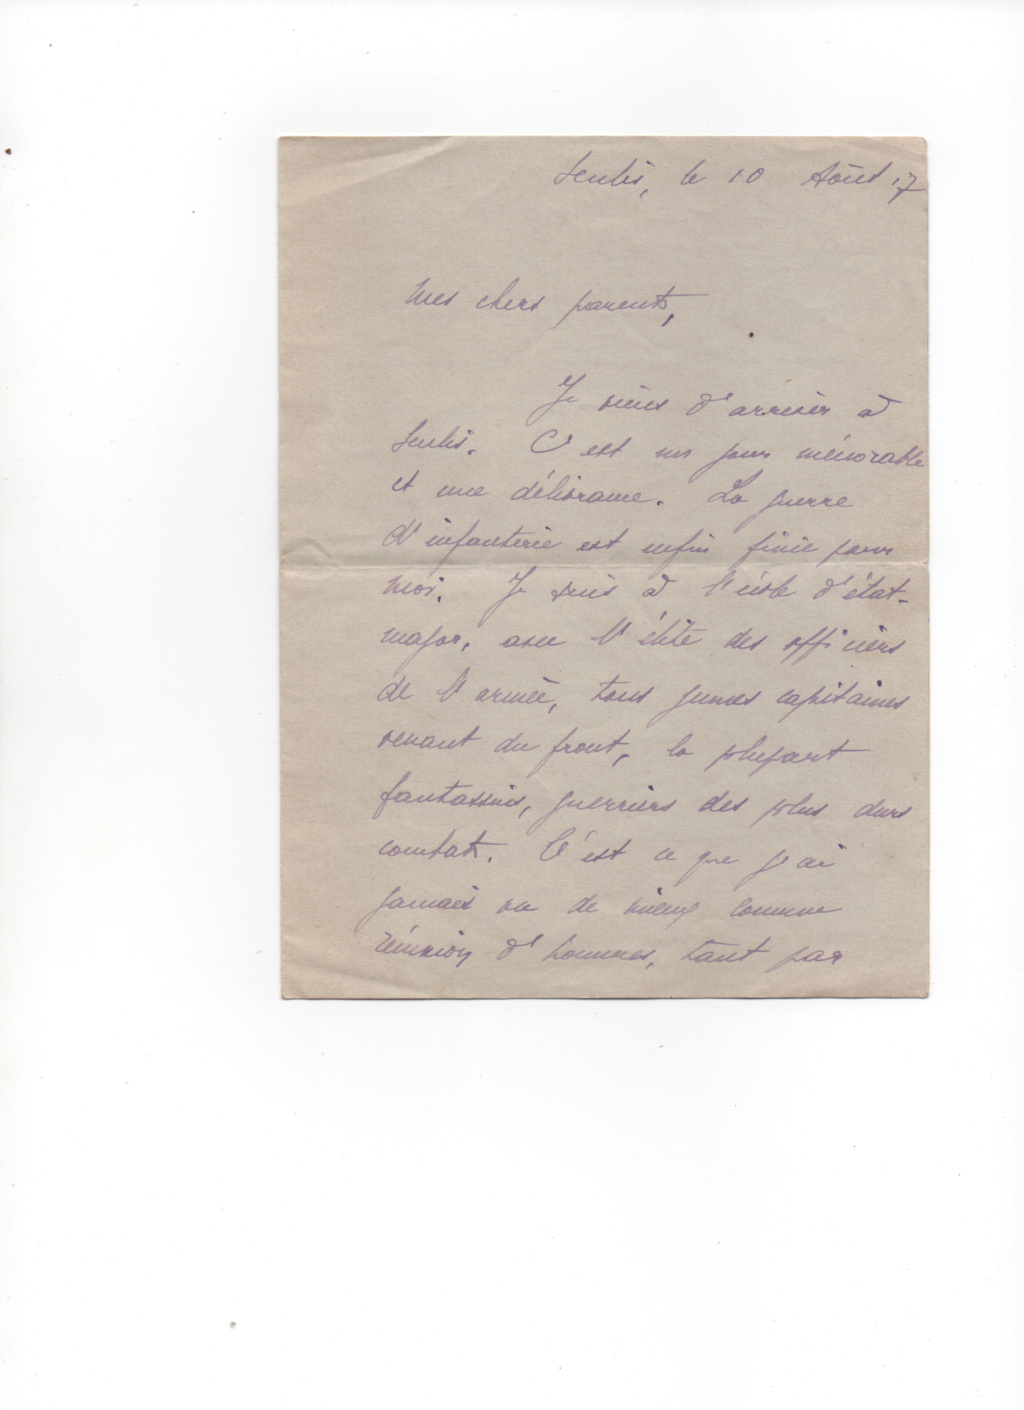 Senlis, le 10 Août 17
Mes chers parents,
Je viens d'arriver à
Senlis. C'est un jour mémorable
et une délivrance. La guerre
d'infanterie est enfin finie pour
moi. Je suis à l'école d'état-
major, avec l'élite des officiers
de l'armée, tous jeunes capitaines
venant du front, la plupart
fantassins, guerriers des plus durs
combats. C'est ce que j'ai
jamais vu de mieux comme
réunion d'hommes, tant par